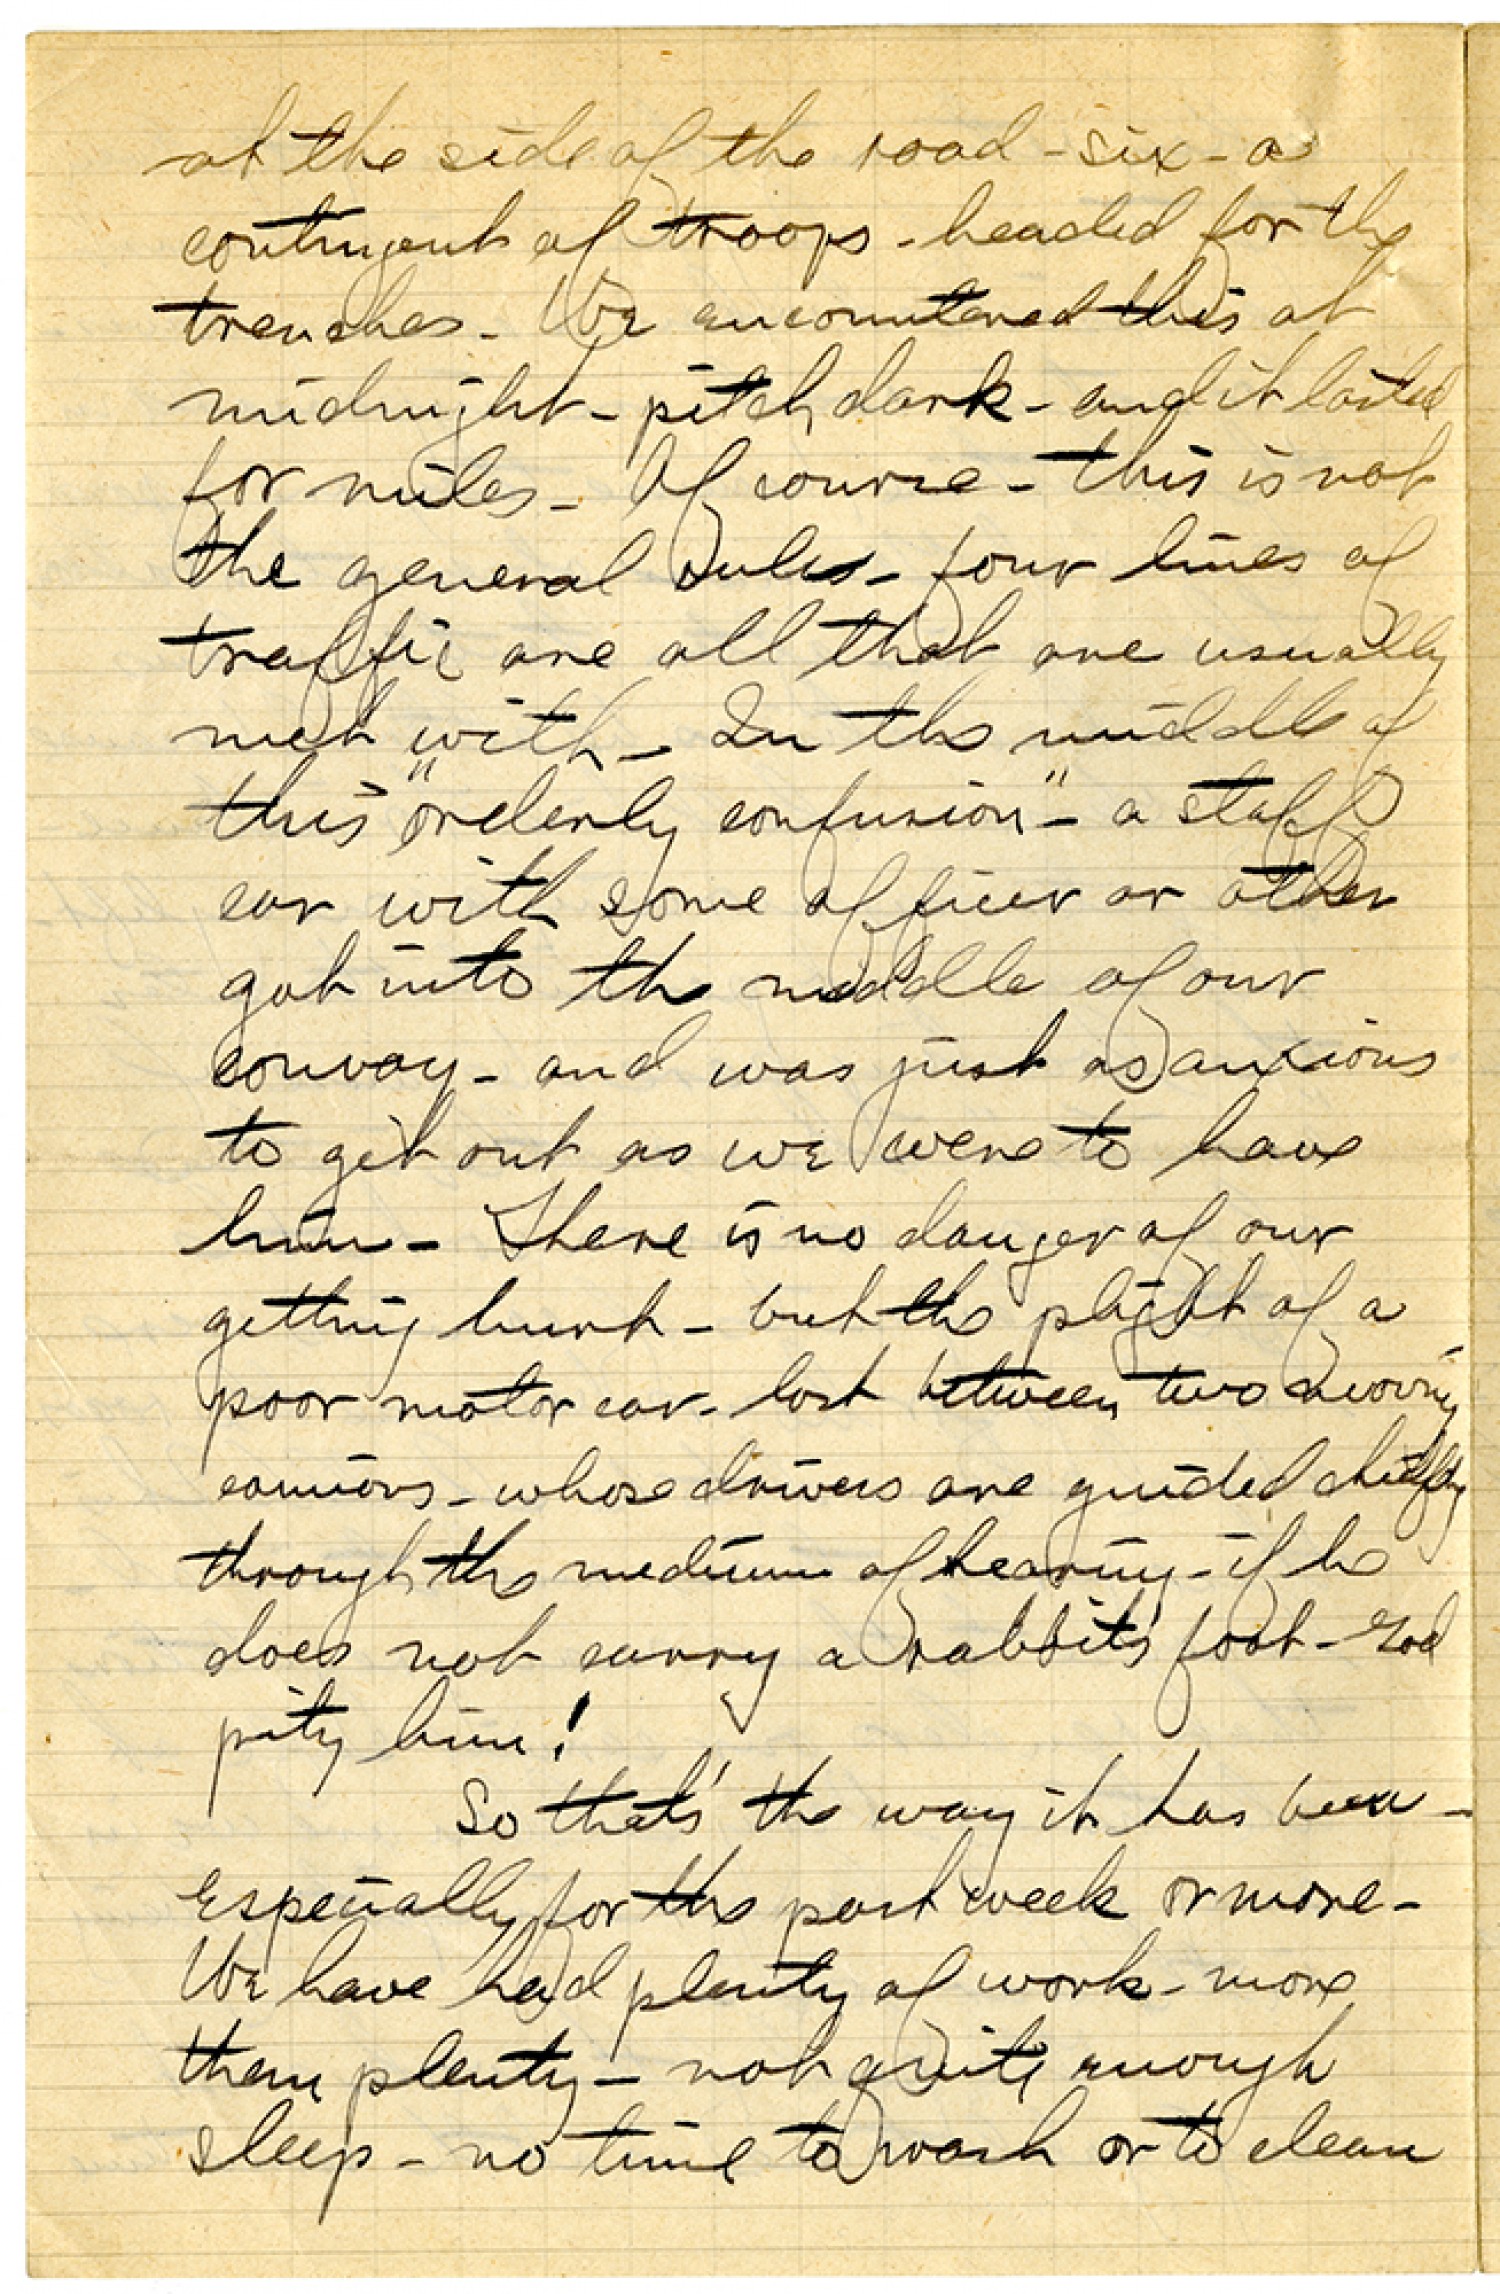 at the side of the road - six - a
contingent of troops - headed for the
trenches - We encountered this at
midnight - pitch dark - and it lasted
for miles - Of course - this is not
the general rules - four lines of
traffic are all that are usually
met with - In the middle of
this "orderly confusion" - a staff
car with some officer or other
got into the middle of our
convoy - and was just as anxious
to get out as we were to have
him - There is no danger of our
getting hurt - but the plight of a
poor motor car - lost between two moving
camions - whose drivers are guided chiefly
through the medium of hearing - if he
does not carry a rabbits' foot - God
pity him!
So thats' the way it has been -
Especially for the past week or more -
We have had plenty of work - more
than plenty - not quite enough
sleep - no time to wash or to clean